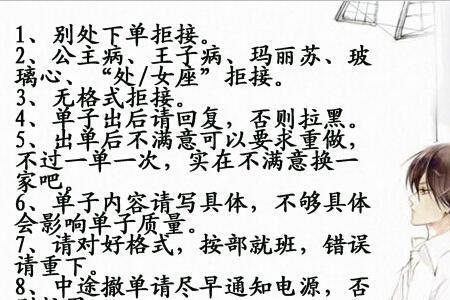 1、别处下单拒接。
2、公主病、王子病、玛丽苏、玻
璃心、“处/女座”拒接。
3、无格式拒接。
4、单子出后请回复，否则拉黑。
5、出单后不满意可以要求重做，
不过一单一次，实在不满意换一
家吧。
6、单子内容请写具体，不够具体
会影响单子质量。
7、请对好格式，按部就班，错误
请重下。
8、中途撤单请尽早通知电源，否